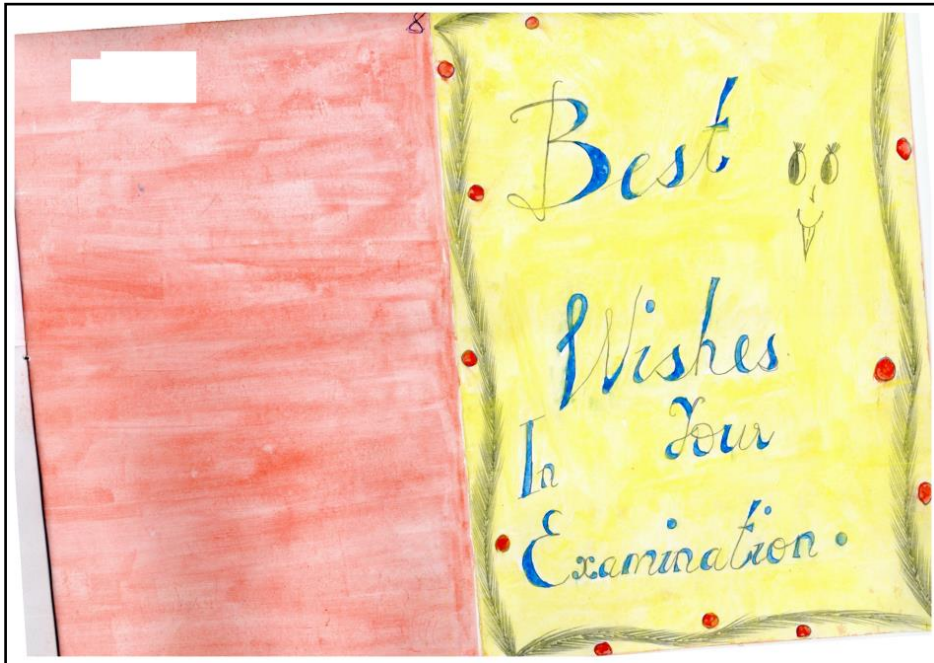 8
Best
Wishes
In Your
Examination.